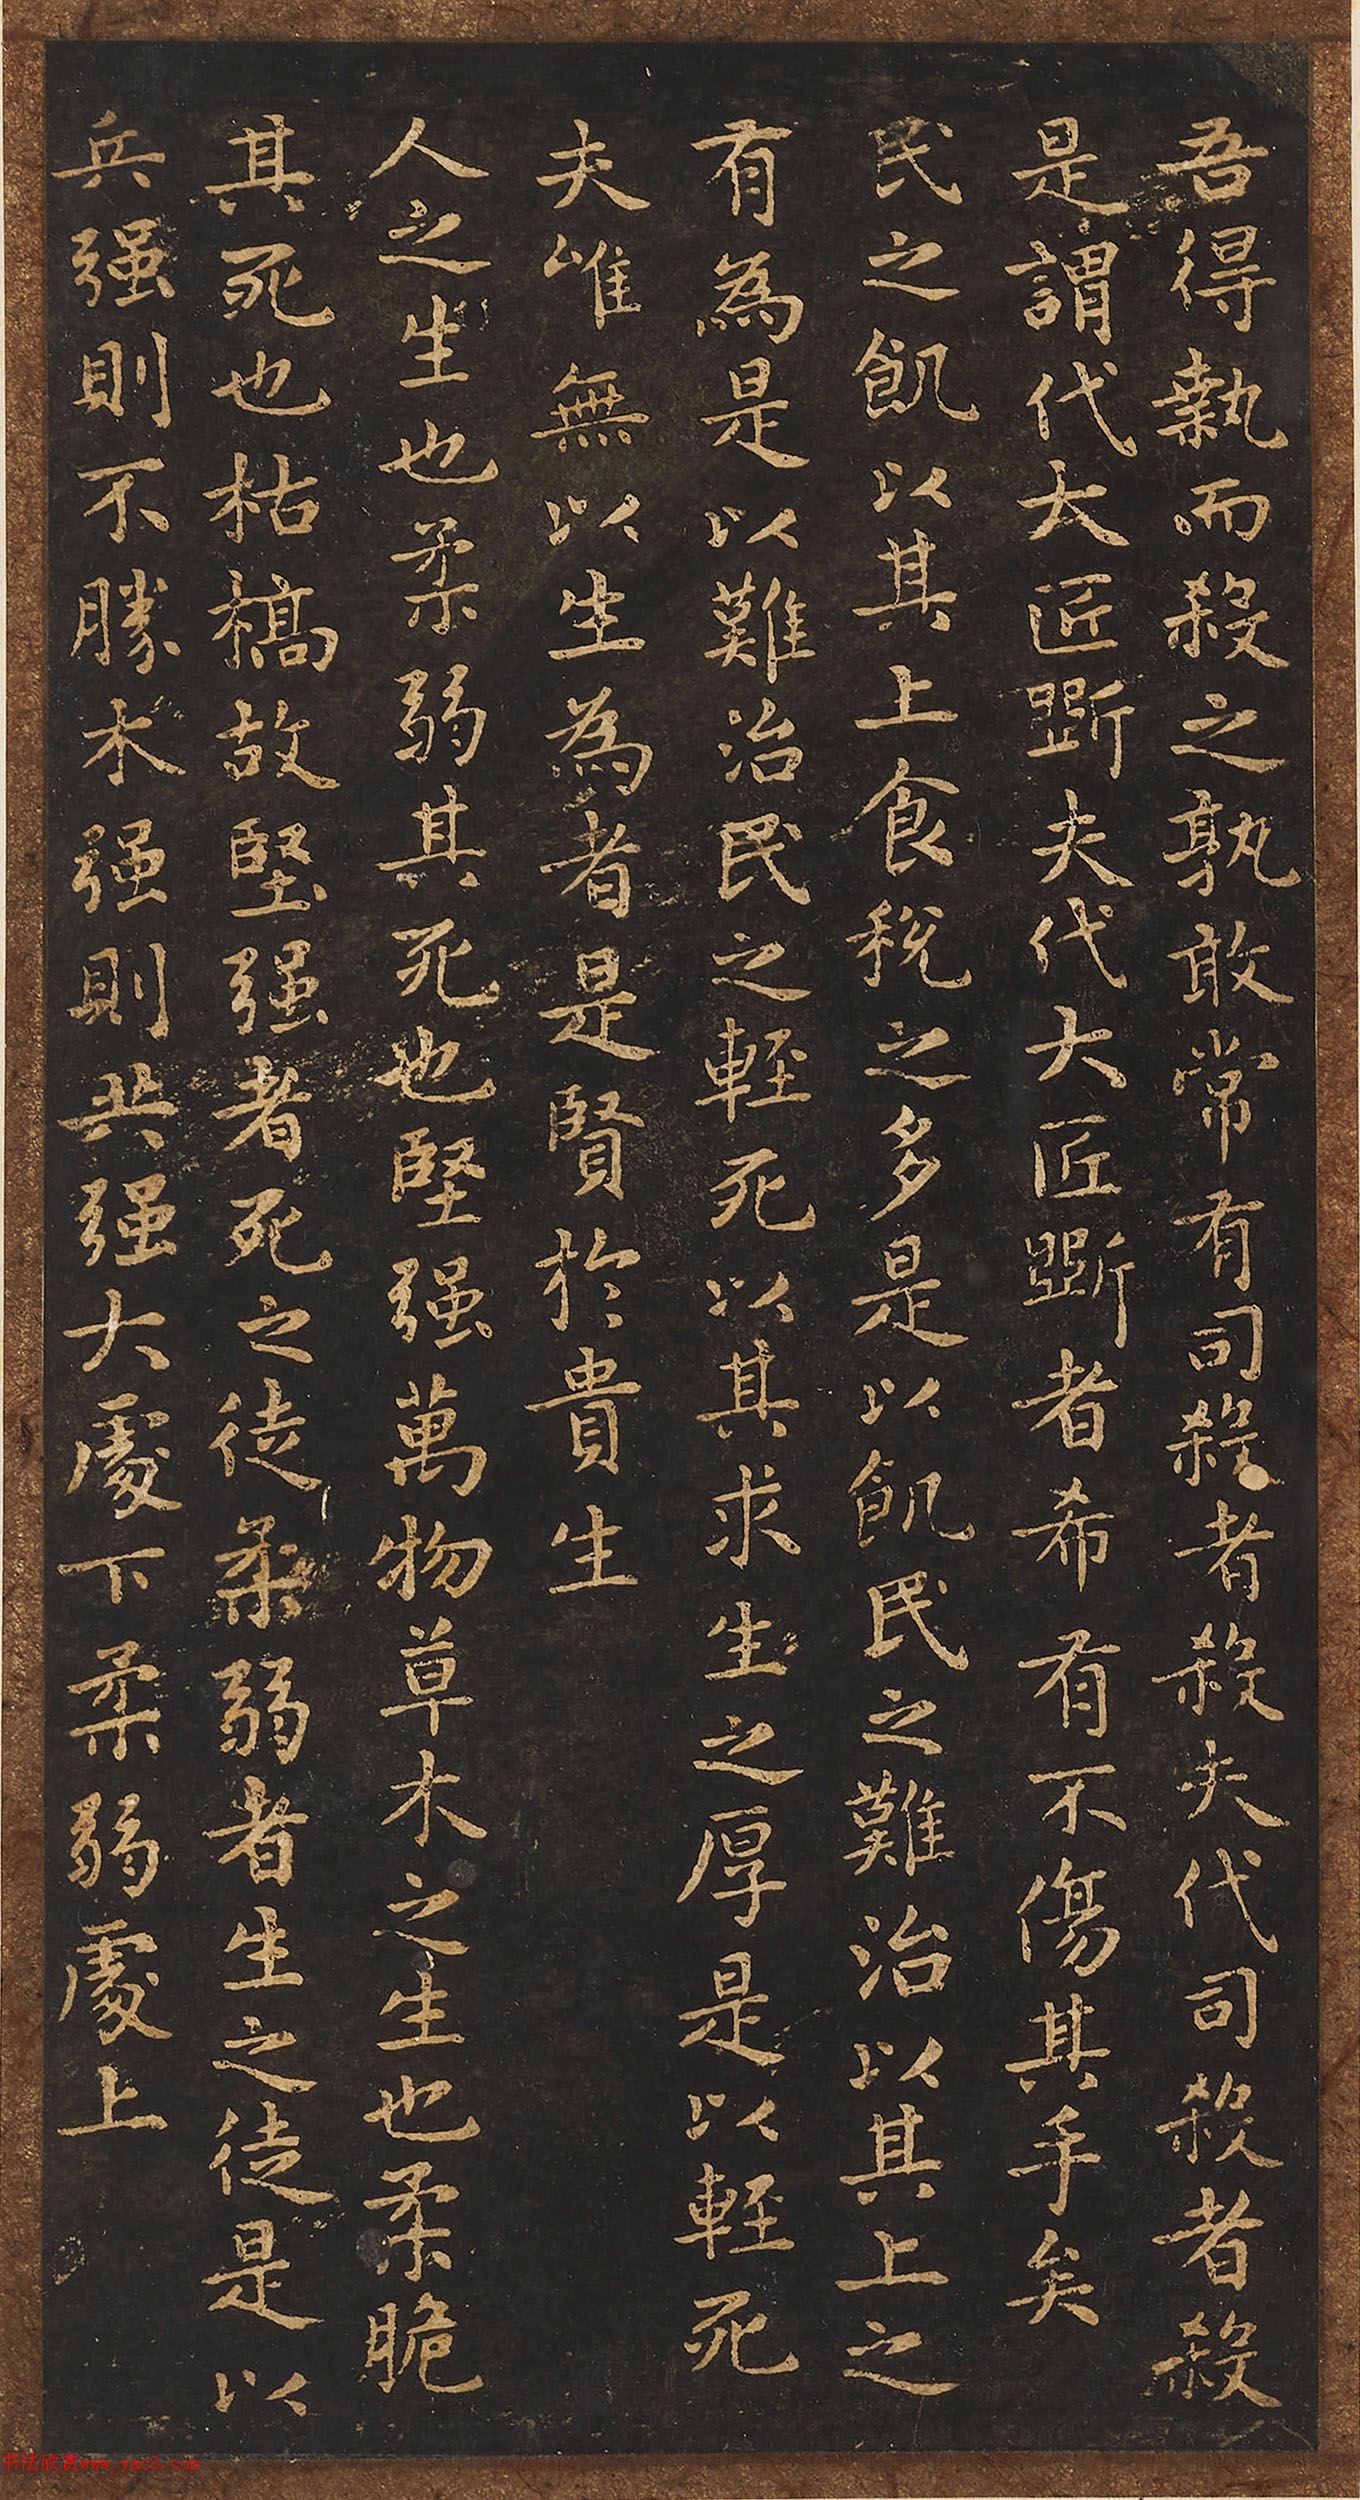 吾得執而殺之孰敢常有司殺者殺夫代司殺者殺
是謂代大匠斲夫代大匠斲者希有不傷其手矣
民之飢以其上食稅之多是以飢民之難治以其上之
有為是以難治民之輕死以其求生之厚是以輕死
夫唯無以生為者是賢於貴生
人之生也柔弱其死也堅强萬物草木之生也柔脆
其死也枯槁故堅强者死之徒柔弱者生之徒是以
兵强則不勝木强則共强大處下柔弱處上
书法欣赏www.yac8.com